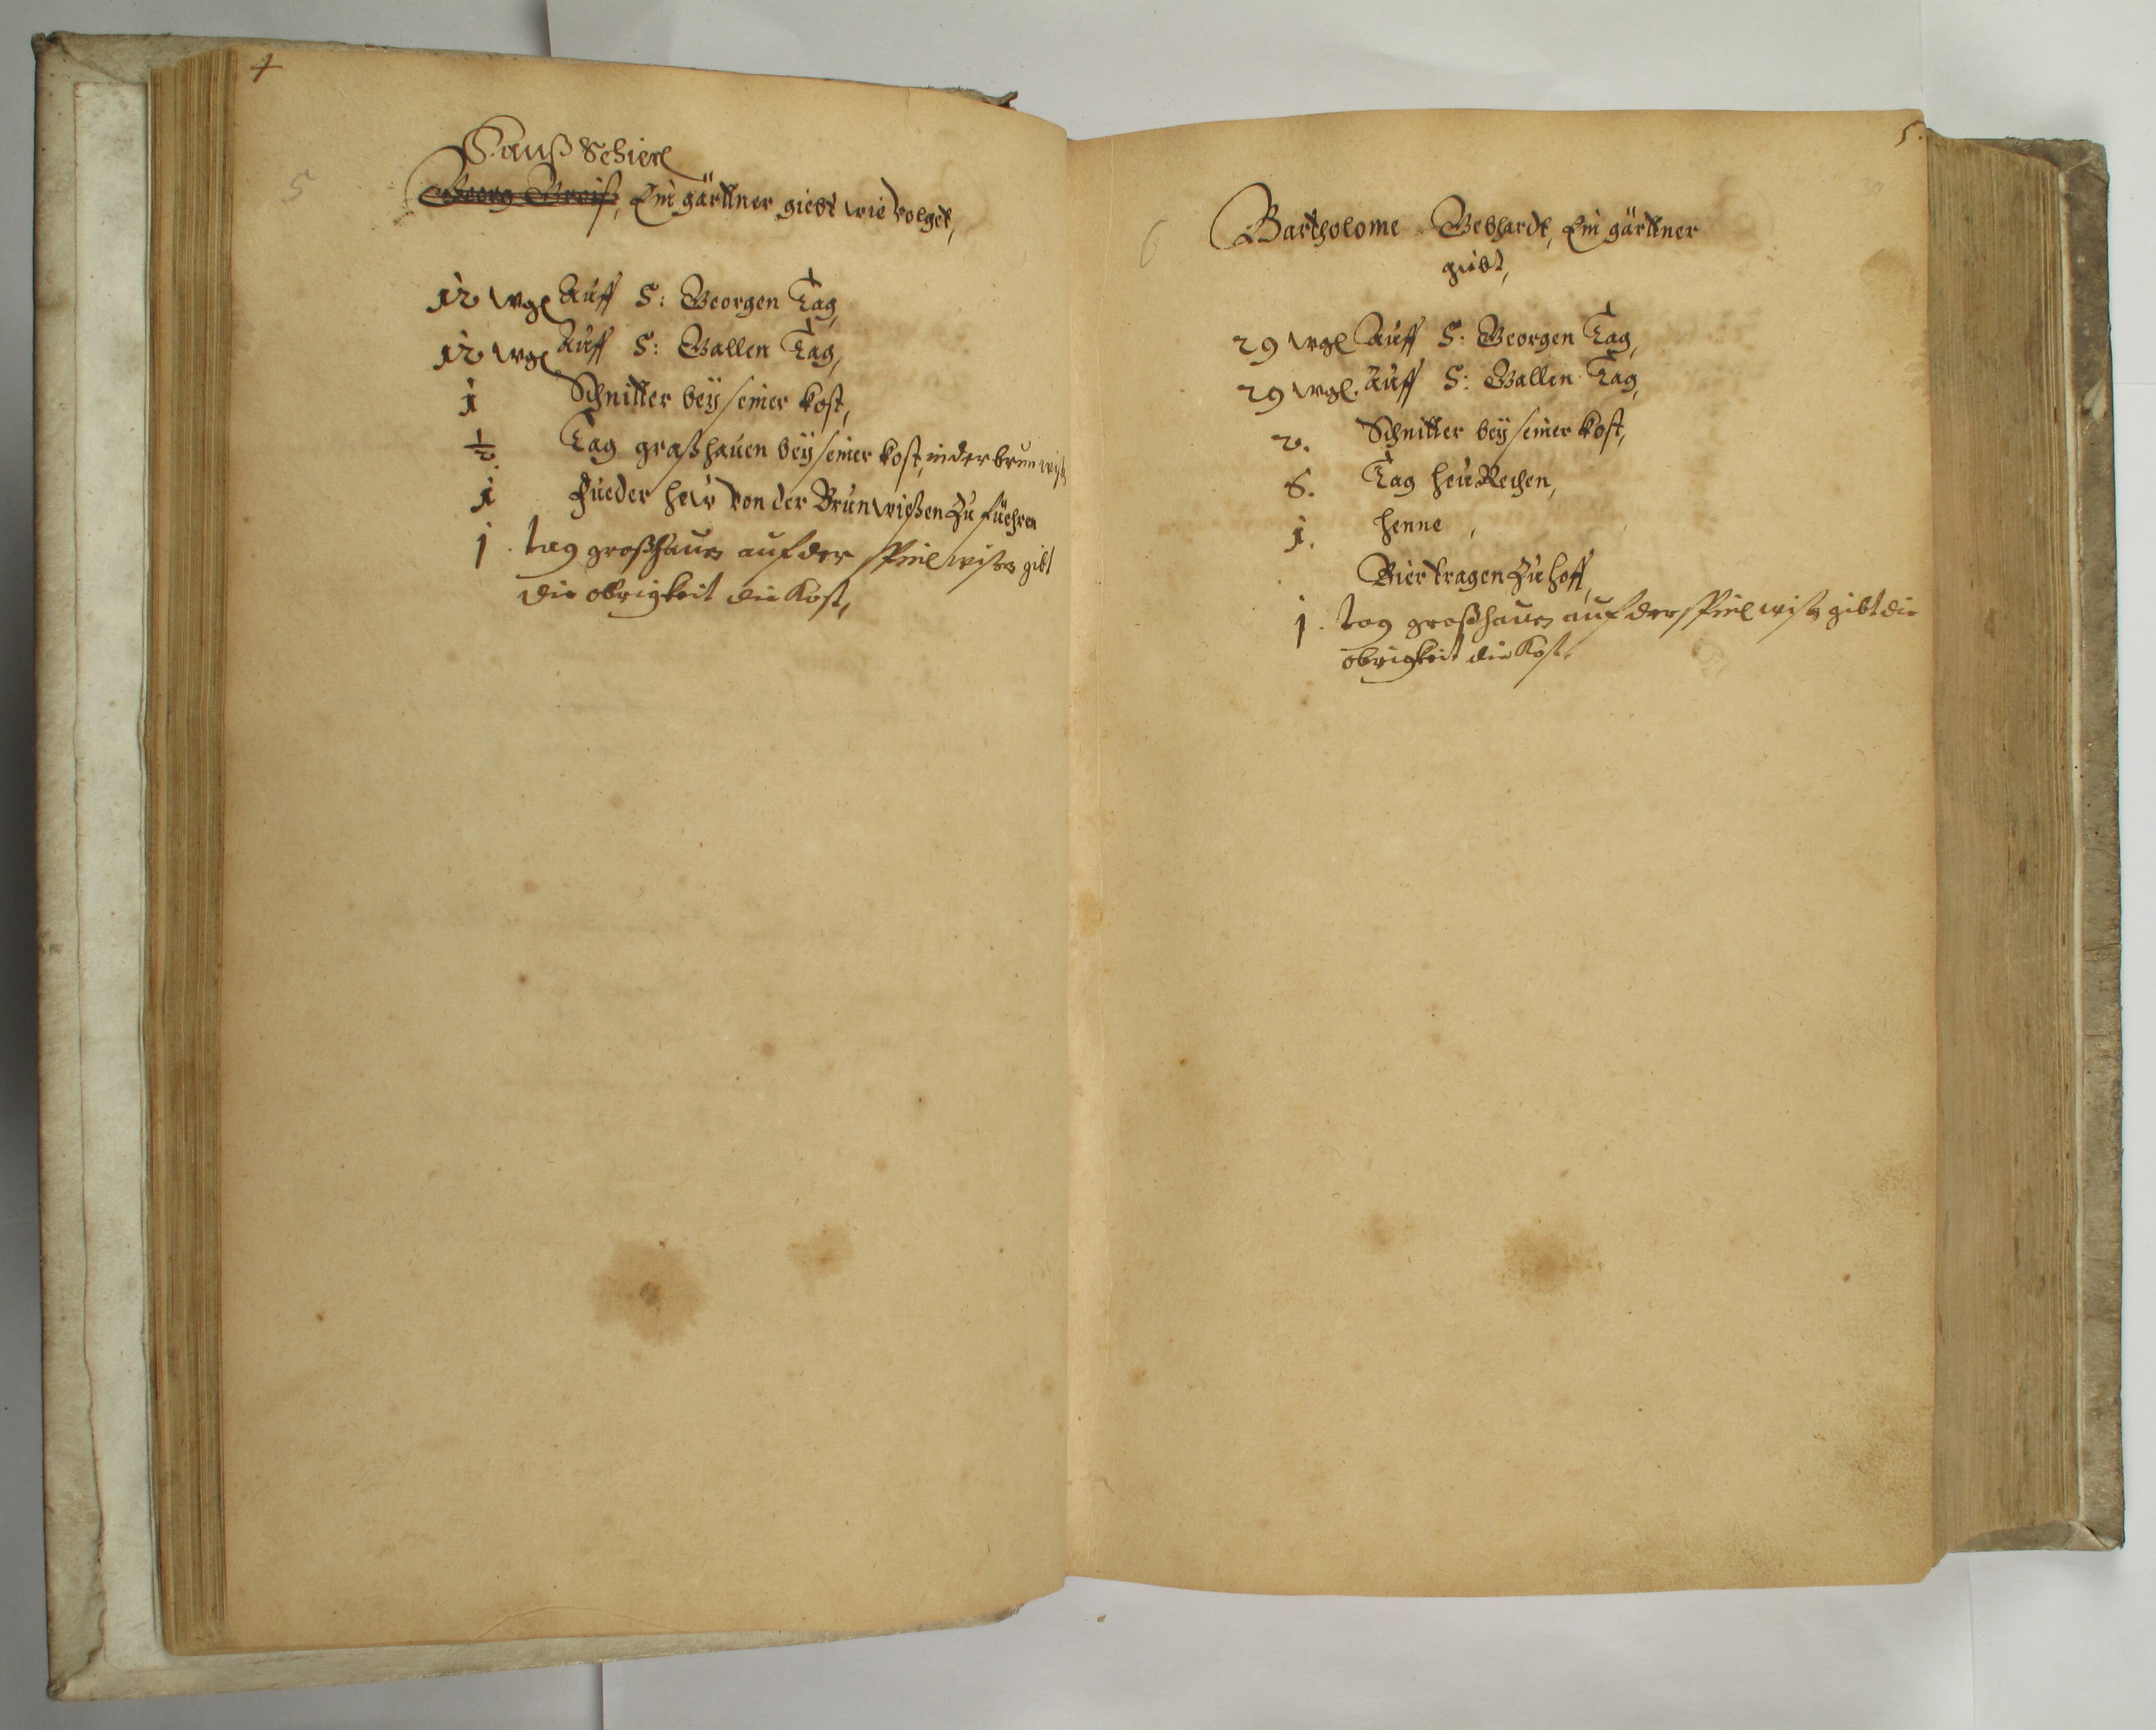 4
5
Hanß Schierl
Georg Greiß, Ein gärttner giebt wie volget,
12 wgl Auff S: Georgen Tag,
12 wgl Auff S: Gallen Tag,
1 Schnitter beÿ seiner kost,
½ Tag graßhauen beÿ seiner kost, in der brun wiß
1 Fueder hew von der Brunwießen Zu füehren
1. tag graßhauen auf der spiel wißen gibt
die obrigkeit die Kost,
5.
30
6
Bartholome Gebhardt, Ein gärttner
giebt,
29 wgl Auff S: Georgen Tag,
29 wgl. Auff S: Gallen Tag,
2. Schnitter beÿ seiner kost,
6. Tag heu Rechen,
1. henne,
Bier tragen Zue hoff,
1. tag graßhauen auf der spiel wiß gibt die
obrigkeit die Kost.